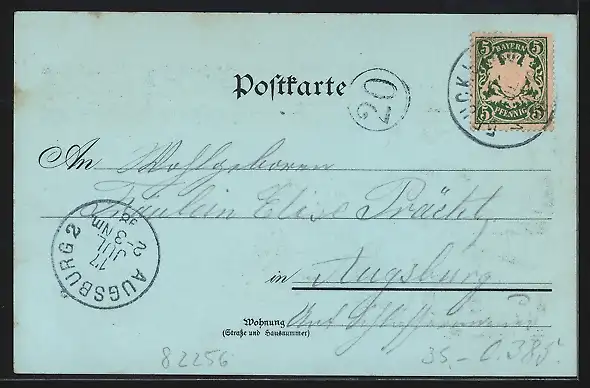 5 BAYERN 5
Postkarte
20
5 PFENNIG 5
An Wohlgeboren
Fräulein Elise Prächt
AUGSBURG 2
17 JUL
2-3 Nm
98
in Augsburg
Wohnung
(Straße und Hausnummer)
82256
35.- C.385.